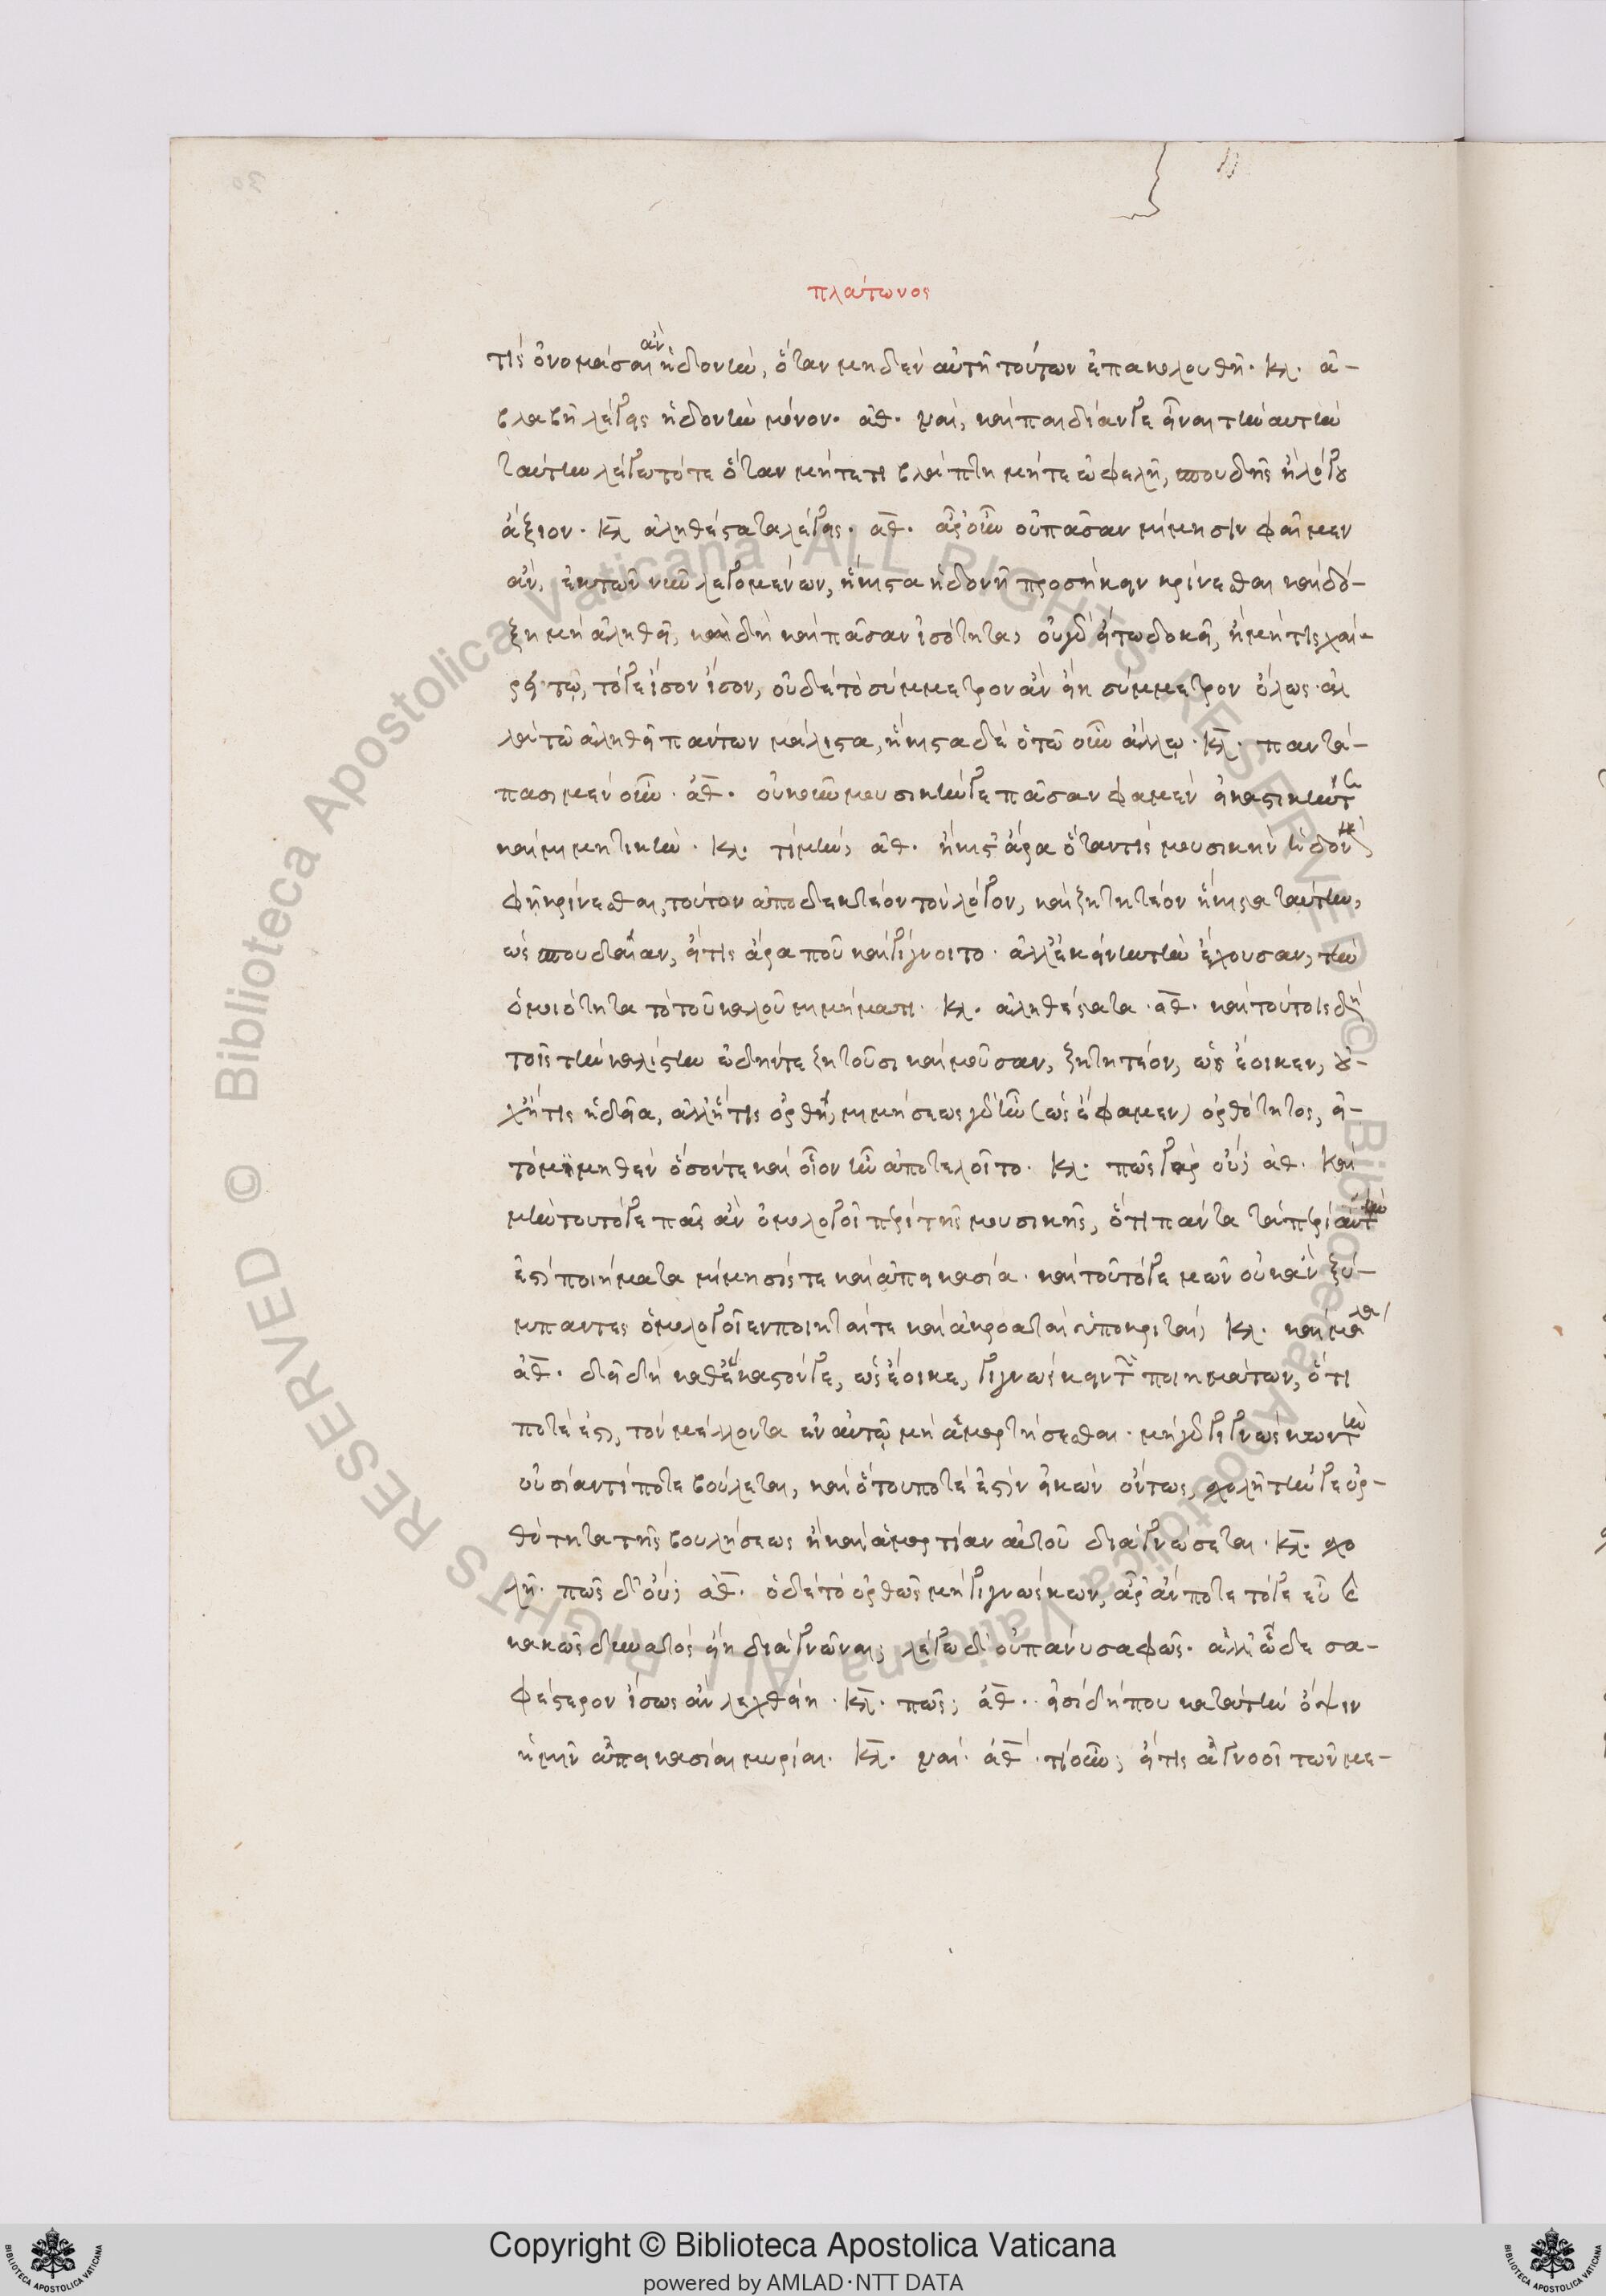 πλάτωνος
τις ὀνομάσαι ἂν ἡδονὴν, ὅταν μηδὲν αὐτῆ τούτων ἐπακολουθῆ. κλ. ἀ-
βλαβῆ λέγεις ἡδονὴν μόνον. ἀθ. ναὶ, καὶ παιδιάν γε εἶναι τὴν αὐτὴν
ταύτην λέγω τότε ὅταν μήτε τι βλάπτη μήτε ὠφελῆ, σπουδῆς ἢ λόγου
ἄξιον. κλ ἀληθέστατα λέγεις. ἀθ. ἆρ' οὖν οὐ πᾶσαν μίμησιν φαῖμεν
ἂν, ἐκ τῶν νῦν λεγομένων, ἥκιστα ἡδονῆ προσήκειν κρίνεσθαι καὶ δό-
ξη μὴ ἀληθεῖ, καὶ δὴ καὶ πᾶσαν ἰσότητα, οὐ γὰρ εἴ τω δοκεῖ, ἢ μή τις χαί-
ρει τῷ, τό γε ἴσον ἴσον, οὐδὲ τὸ σύμμετρον ἂν εἴη σύμμετρον ὅλως. ἀλ
λὰ τῶ ἀληθεῖ πάντων μάλιστα, ἥκιστα δὲ ὁτῶ οὖν ἄλλῳ. κλ. παντά-
πασι μὲν οὖν. ἀθ. οὐκοῦν μουσικήν γε πᾶσαν φαμὲν εἰκαστικήν τε
καὶ μιμητικὴν. κλ. τί μὴν; ἀθ. ἥκιστ' ἄρα ὅταν τις μουσικὴν ἡδονῆ
φῆ κρίνεσθαι, τοῦτον ἀποδεκτέον τὸν λόγον, καὶ ζητητέον ἥκιστα ταύτην,
ὡς σπουδαίαν, εἴ τις ἄρα που καὶ γίγνοιτο. ἀλλ' ἐκείνην τὴν ἔχουσαν, τὴν
ὁμοιότητα τὸ τοῦ καλοῦ μιμήματι. κλ. ἀληθέστατα. ἀθ. καὶ τούτοις δὴ
τοῖς τὴν καλίστην ᾠδήν τε ζητοῦσι καὶ μοῦσαν, ζητητέον, ὡς ἔοικεν, οὐ-
χ ἥ τις ἡδεῖα, ἀλλ' ἥ τις ὀρθή, μιμήσεως γὰρ ἦν (ὡς ἔφαμεν) ὀρθότητος, εἰ-
τὸ μιμηθὲν ὅσον τε καὶ οἷον ἦν ἀποτελοῖτο. κλ. πῶς γὰρ οὔ; ἀθ. καὶ
μὴν τοῦτό γε πᾶς ἂν ὁμολογοῖ περὶ τῆς μουσικῆς, ὅτι πάντα τὰ περὶ αὐτὴν
ἐστὶ ποιήματα μίμησίς τε καὶ ἀπεικασία. καὶ τοῦτό γε μῶν οὐκ ἂν ξύ-
μπαντες ὁμολογοῖεν ποιηταί τε καὶ ἀκροαταὶ ὑποκριταί; κλ. καὶ μάλα
ἀθ. δεῖ δὴ καθ' ἕκαστόν γε, ὡς ἔοικε, γιγνώσκειν τῶν ποιημάτων, ὅ τι
ποτέ ἐστι, τὸν μέλλοντα ἐν αὐτῷ μὴ ἁμαρτήσεσθαι. μὴ γὰρ γιγνώσκων τὴν
οὐσίαν τί ποτε βούλεται, καὶ ὅτου ποτέ ἐστὶν εἰκὼν ὄντως, σχολῆ τήν γε ὀρ-
θότητα τῆς βουλήσεως ἢ καὶ ἁμαρτίαν αὐτοῦ διαγνώσεται. κλ. σχο
λῆ. πῶς δ' οὔ; ἀθ. ὁ δὲ τὸ ὀρθῶς μὴ γιγνώσκων, ἆρ' ἄν ποτε τό γε εὖ καὶ
κακῶς δυνατὸς εἴη διαγνῶναι; λέγω δ' οὐ πάνυ σαφῶς. ἀλλ' ὧδε σα-
φέστερον ἴσως ἂν λεχθείη. κλ. πῶς; ἀθ. εἰσὶ δή που κατὰ τὴν ὄψιν
ἡμῖν ἀπεικασίαι μυρίαι. κλ. ναί. ἀθ. τί οὖν; εἴ τις ἀγνοοῖ τῶν με-
Copyright © Biblioteca Apostolica Vaticana
powered by AMLAD·NTT DATA